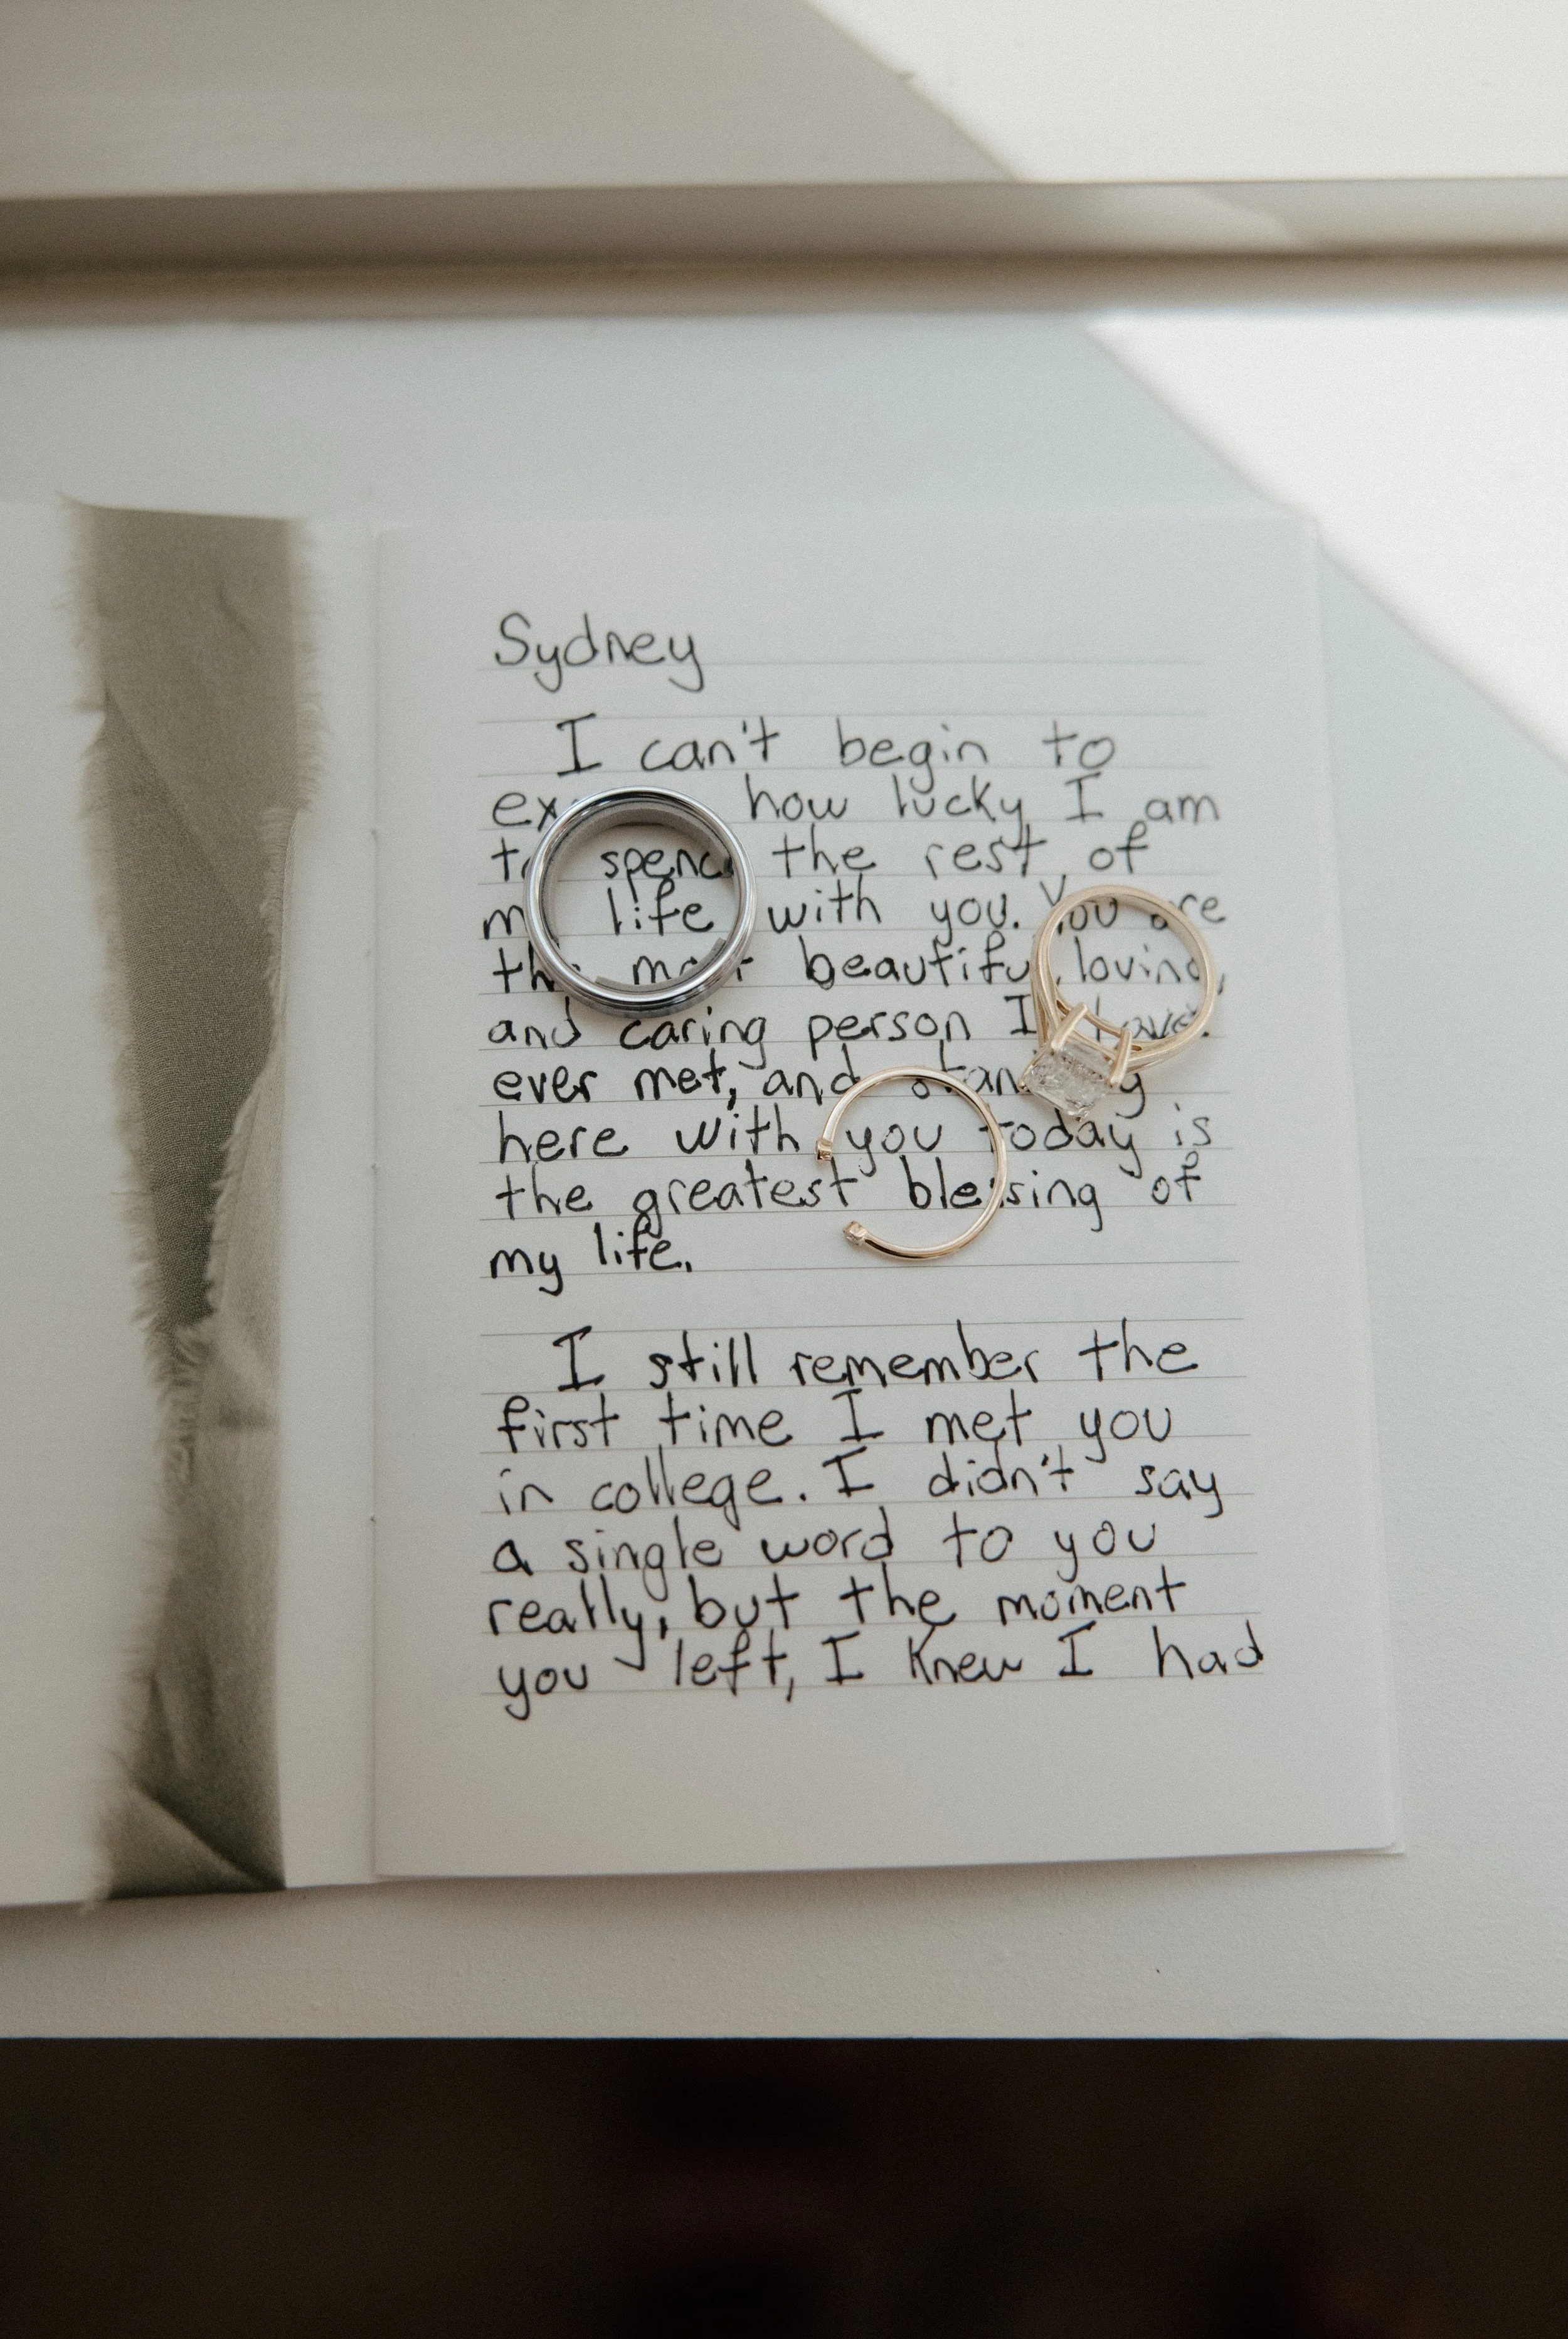 Sydney
I can't begin to
how lucky I am
to spend the rest of
my life with you. You are
the most beautiful, loving,
and caring person I have
ever met, and standing
here with you today is
the greatest blessing of
my life.
I still remember the
first time I met you
in college. I didn't say
a single word to you
really, but the moment
you left, I knew I had